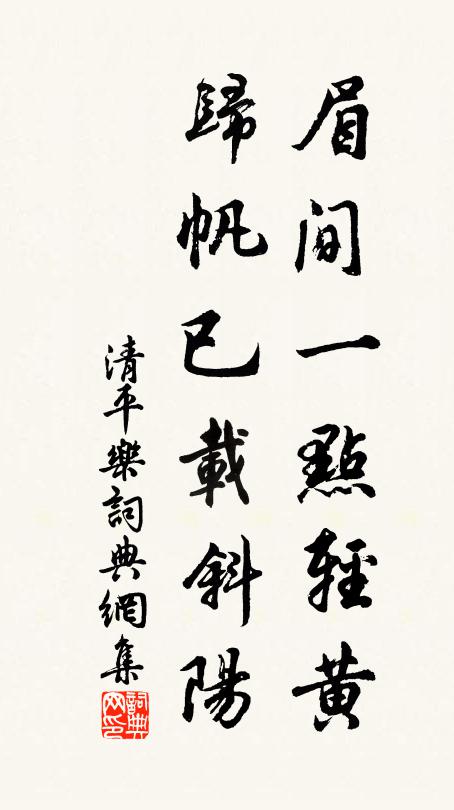 眉間一點輕黃
歸帆已載斜陽
清平樂詞典網集
詞典網印